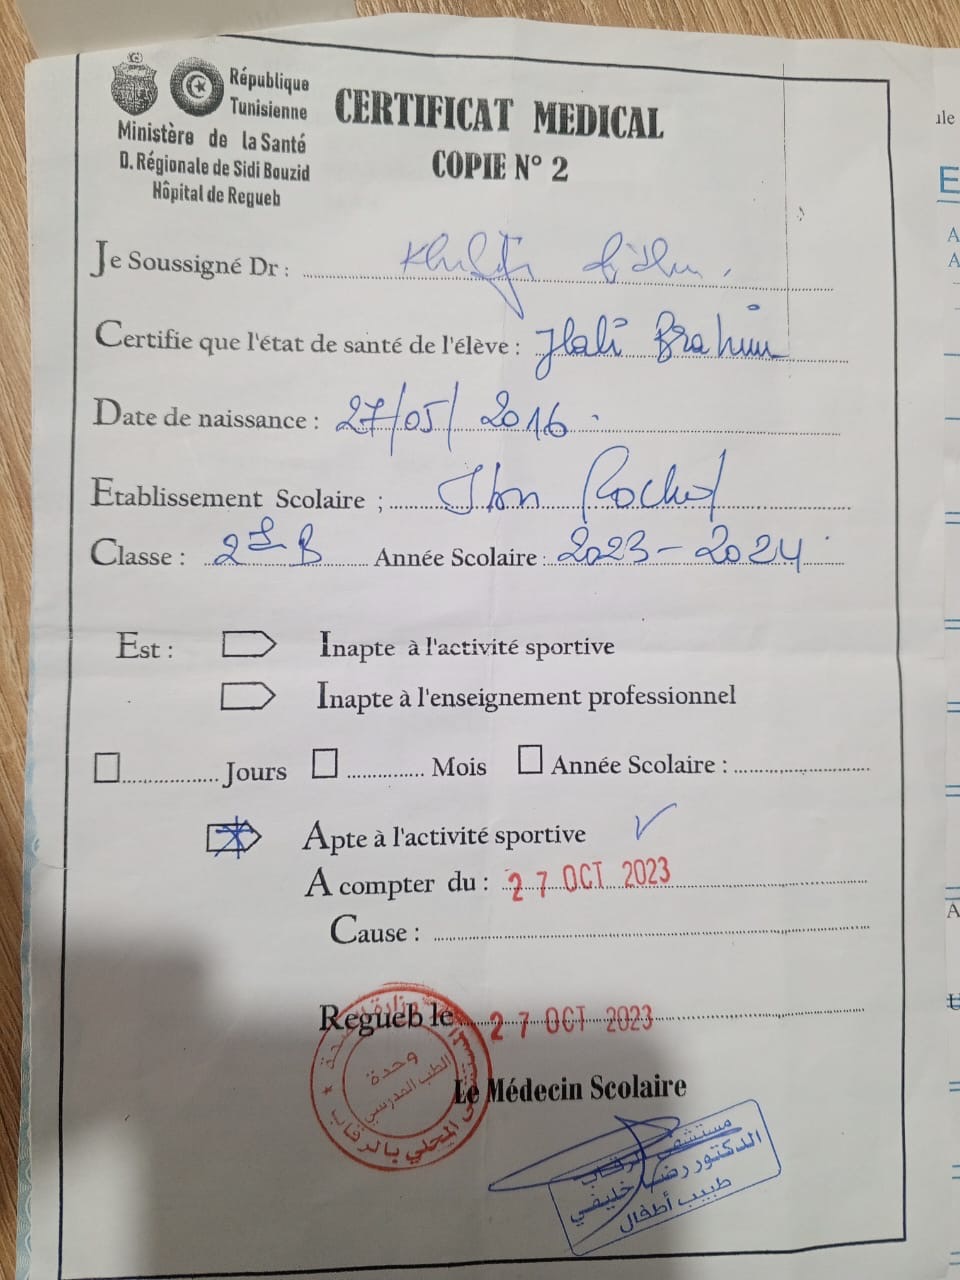 République
Tunisienne
Ministère de la Santé
D. Régionale de Sidi Bouzid
Hôpital de Regueb
CERTIFICAT MEDICAL
COPIE N° 2
Je Soussigné Dr :
Certifie que l'état de santé de l'élève : Jlali Brahim
Date de naissance : 27/05/2016
Etablissement Scolaire ; Ibn Rochd
Classe : 2 B Année Scolaire : 2023-2024
Est : Inapte à l'activité sportive
Inapte à l'enseignement professionnel
Jours Mois Année Scolaire :
Apte à l'activité sportive
A compter du : 27 OCT 2023
Cause :
Regueb le 27 OCT 2023
وحدة
الطب المدرسي
المحلي بالرقاب
Le Médecin Scolaire
مستشفى الرقاب
الدكتور رضا خليفي
طبيب أطفال